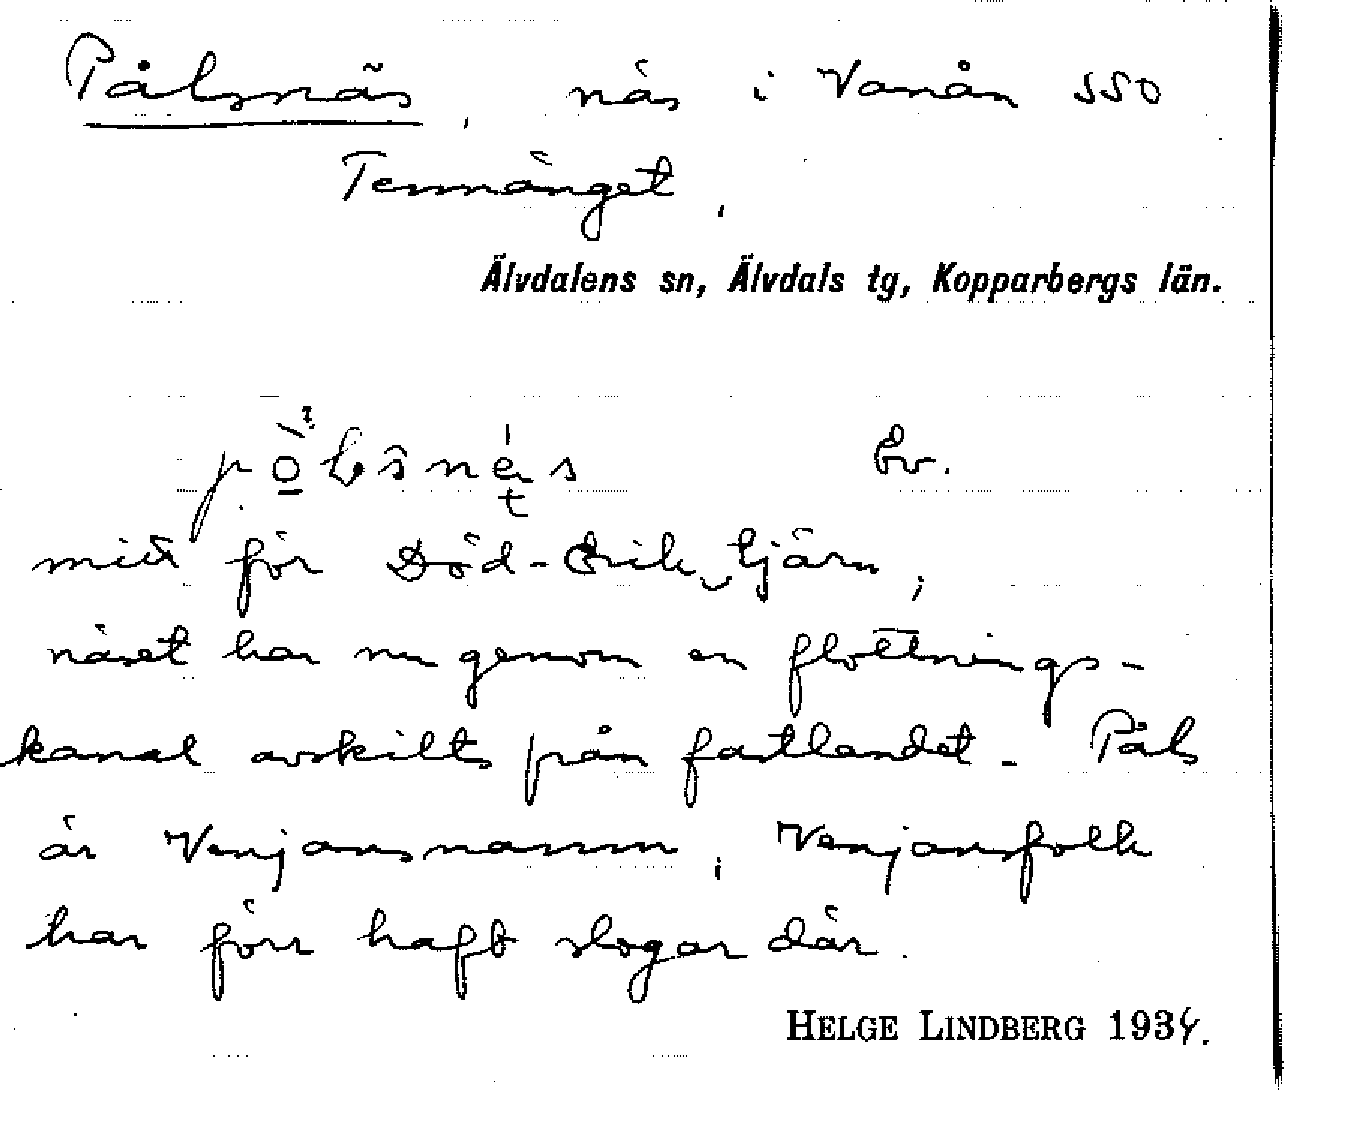 Pålsnäs, näs i Vanån SSO
Tennänget,
Älvdalens sn, Älvdals tg, Kopparbergs län.
bv.
mitt för Död-Erik tjärn,
näset har nu genom en flottnings-
kanal avskilts från fastlandet - Påls
är Venjansnamn, Venjansfolk
har förr haft slogar där.
HELGE LINDBERG 1934.